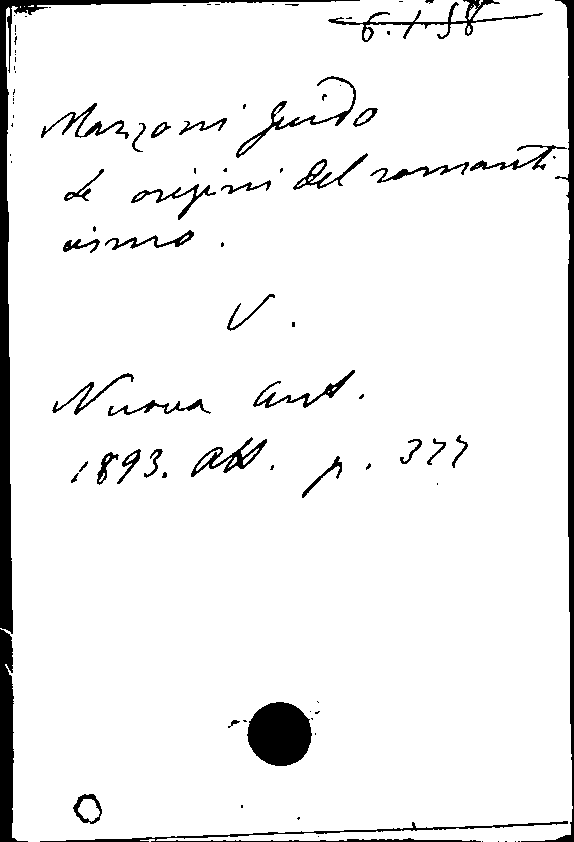 6.1.58
Manzoni Guido
Le origini del romanti-
cismo.
V.
Nuova Ant.
1893. Ott. p. 377